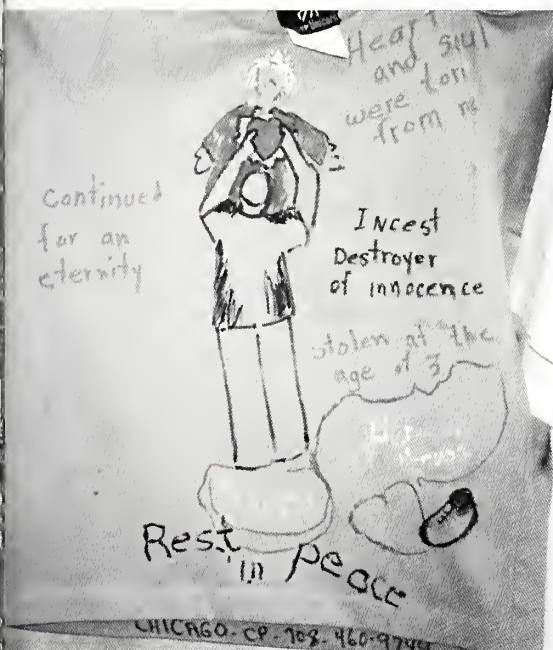 Heart
and soul
were torn
from
Continued
for an
eternity
Incest
Destroyer
of innocence
stolen at the
age of 3
Rest
in Peace
CHICAGO-CP-708-460-9744